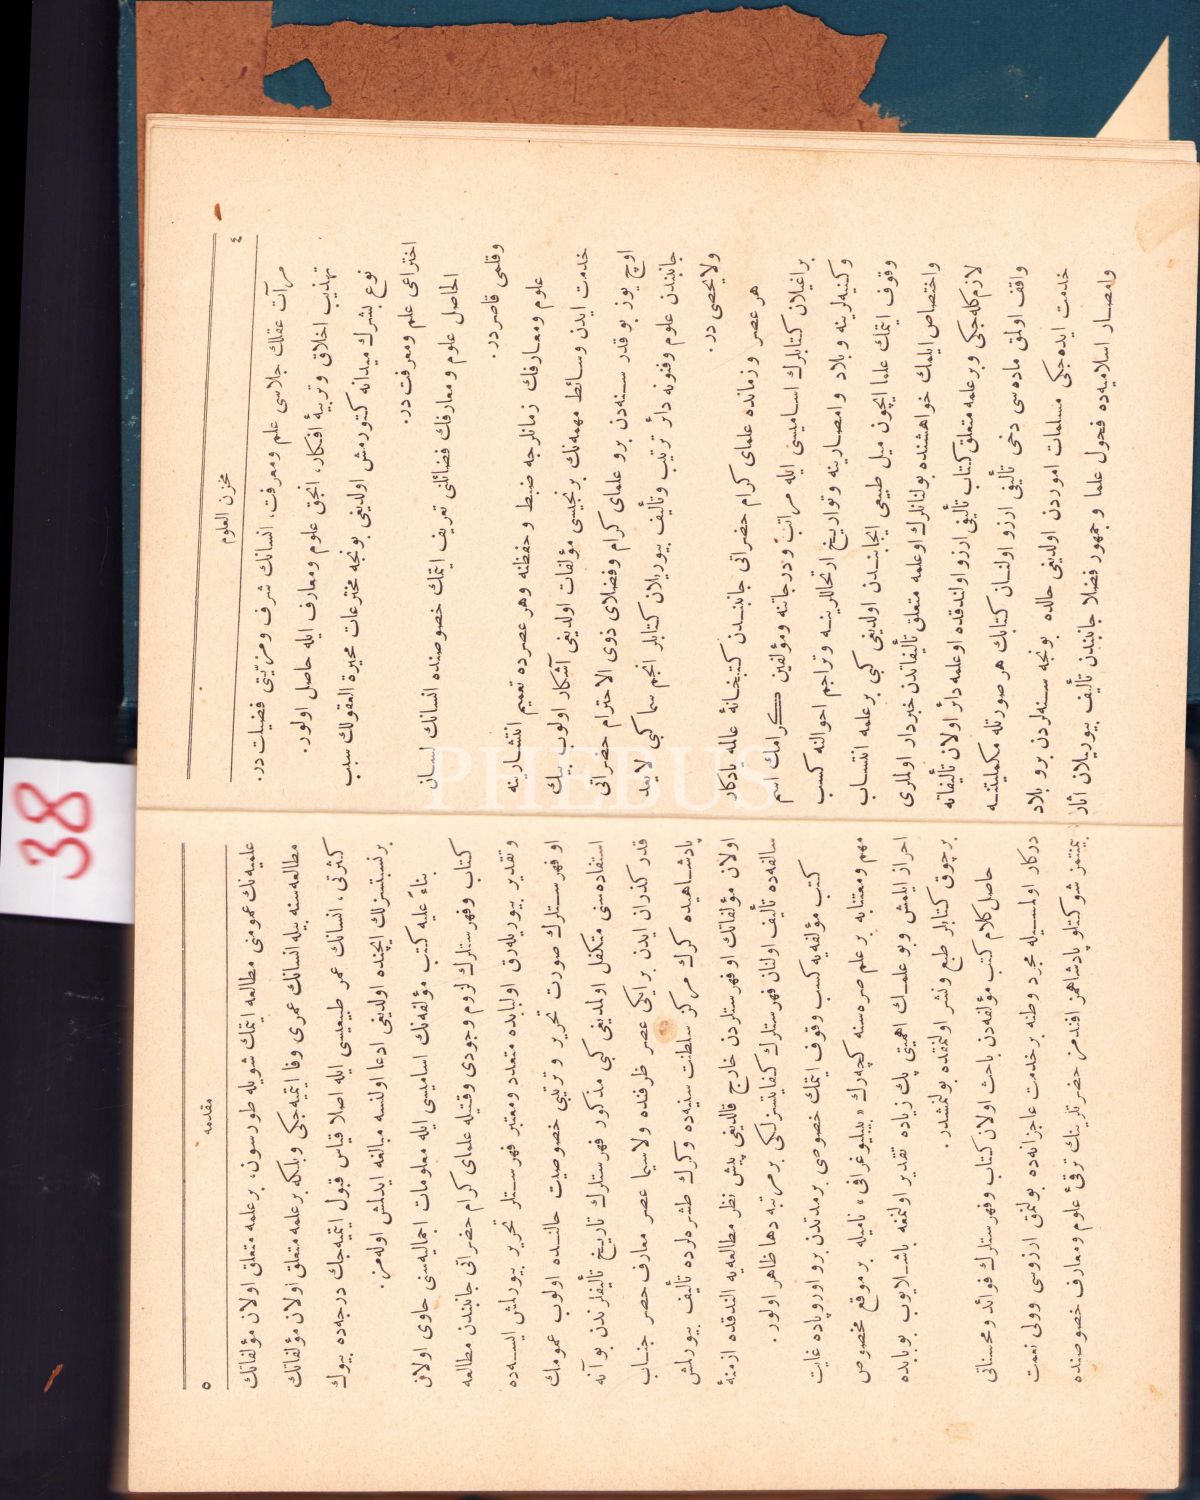 ٤
مخزن العلوم
مرآت عقلك جلاسى علم ومعرفت، انسانك شرف ومزيّتى فضيلت در.
تهذيب اخلاق وتربيهٔ افكار، انجق علوم ومعارف ايله حاصل اولور.
نوع بشرك ميدانه كتورمش اولديغى بونجه مخترعات محيرة العقولك سبب
اختراعى علم ومعرفت در.
الحاصل علوم ومعارفك فضائلنى تعريف ايتمك خصوصنده انسانك لسان
وقلمى قاصردر.
علوم ومعارفك زمانلرجه ضبط وحفظنه وهر عصرده تعميم انتشارينه
خدمت ايدن وسائط مهمه‌نك برنجيسى مؤلفات اولديغى آشكار اولوب بيك
اوچ يوز بو قدر سنه‌دن برو علماى كرام وفضلاى ذوى الاحترام حضراتى
جانبندن علوم وفنونه دائر ترتيب وتأليف بيوريلان كتابلر انجم سما كبى لايعد
ولايحصى در.
هر عصر وزمانده علماى كرام حضراتى جانبندن كتبخانهٔ عالمه يادكار
براغيلان كتابلرك اساميسنى ايله مراتب ودرجاتنه ومؤلفين كرامك اسم
وكنيه‌لرينه وبلاد وامصارينه وتواريخ ارتحاللرينه وتراجم احوالنه كسب
وقوف ايتمك علما ايچون ميل طبيعى ايجابندن اولديغى كبى بر علمه انتساب
واختصاص ايلمك خواهشنده بولنانلرك اوعلمه متعلق تأليفاتدن خبردار اولملرى
لازم‌كله‌جكى وبرعلمه متعلق كتاب تأليفى ارزو اولندقده اوعلمه دائر اولان تأليفاته
واقف اولمق ماده‌سى دخى تأليفى ارزو اولنان كتابك هر صورتله مكمليتنه
خدمت ايده‌جكى مسلمات اموردن اولديغى حالده بونجه سنه‌لردن برو بلاد
وامصار اسلاميه‌ده فحول علما وجمهور فضلا جانبندن تأليف بيوريلان اثار
مقدمه
٥
علميه‌نك عمومنى مطالعه ايتمك شويله طورسون، برعلمه متعلق اولان مؤلفاتك
مطالعه‌سنه بيله انسانك عمرى وفا ايتميه‌جكى وبلكه برعلمه متعلق اولان مؤلفاتك
كثرتى، انسانك عمر طبيعيسى ايله اصلا قياس قبول ايتميه‌جك درجه‌ده بيوك
برنسبتسزلك ايچنده اولديغى ادعا اولنسه مبالغه ايدلمش اوله‌مز.
بناءً عليه كتب مؤلفه‌نك اساميسى ايله معلومات اجماليه‌سنى حاوى اولان
كتاب وفهرستلرك لزوم وجودى وقتيله علماى كرام حضراتى جانبندن مطالعه
وتقدير بيوريله‌رق اولبابده متعدد ومعتبر فهرستلر تحرير بيورلمش ايسه‌ده
اوفهرستلرك صورت تحرير وترتيبى خصوصيت حالنده اولوب عمومك
استفاده‌سنى متكفل اولمديغى كبى مذكور فهرستلرك تاريخ تأليفلرندن بو آنه
قدر كذران ايدن برايكى عصر ظرفنده ولاسيما عصر معارف حصر جناب
پادشاهيده كرك مركز سلطنت سنيه‌ده وكرك طشره‌لرده تأليف بيورلمش
اولان مؤلفاتك اوفهرستلردن خارج قالديغى پيش نظر مطالعه‌يه الندقده ازمنهٔ
سالفه‌ده تأليف اولنان فهرستلرك كفايتسزلكى برمرتبه دها ظاهر اولور.
كتب مؤلفه‌يه كسب وقوف ايتمك خصوصى برمدتدن برو اوروپاده غايت
مهم ومعتنابه برعلم صره‌سنه كچه‌رك «بيبليوغرافى» ناميله برموقع مخصوص
احراز ايلمش وبو علمك اهميتى پك زياده تقدير اولنمغه باشلايوب بوبابده
برچوق كتابلر طبع ونشر اولنمقده بولنمشدر.
حاصل كلام كتب مؤلفه‌دن باحث اولان كتاب وفهرستلرك فوائد ومحسناتى
دركار اولمسيله مجرد وطنه برخدمت عاجزانه‌ده بولنمق ارزوسى وولى نعمت
بيمنتمز شوكتلو پادشاهمز افندمز حضرتلرينك ترقئ علوم ومعارف خصوصنده
38
PHEBUS